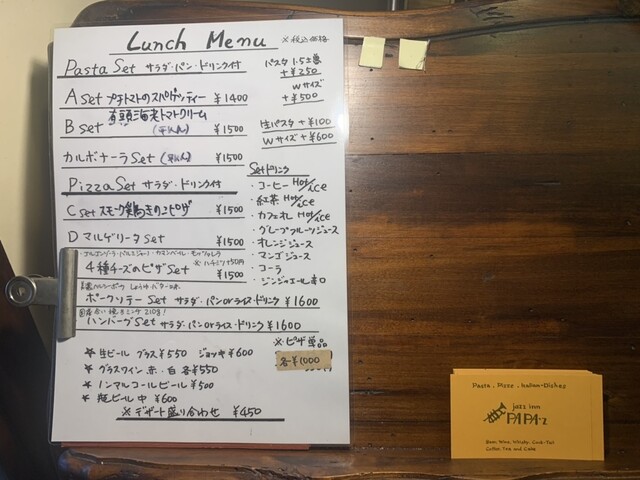 Lunch Menu ※税込価格
Pasta Set サラダ・パン・ドリンク付
パスタ 1.5士曽
+¥250
Wサイズ
+¥500
A set プチトマトのスパゲッティー ¥1400
有頭海老トマトクリーム
B set (平めん) ¥1500
生パスタ +¥100
Wサイズ +¥600
カルボナーラ Set (平めん) ¥1500
Pizza Set サラダ・ドリンク付
C set スモーク鶏ときのこピザ ¥1500
D マルゲリータ Set ¥1500
ゴルゴンゾーラ・パルミジャーノ・カマンベール・モッツァレラ
※ハチミツ 50円
4種チーズのピザ Set ¥1500
しょうゆ・バター
ポークソテー Set サラダ・パン or ライス・ドリンク ¥1600
210g!
ハンバーグ Set サラダ・パン or ライス・ドリンク ¥1600
Set ドリンク
・コーヒー Hot/ice
・紅茶 Hot/ice
・カフェオレ Hot/ice
・グレープフルーツジュース
・オレンジジュース
・マンゴジュース
・コーラ
・ジンジャエール 辛口
※ピザ単品
各¥1000
★ 生ビール グラス ¥550 ジョッキ ¥600
★ グラスワイン 赤・白 各¥550
★ ノンアルコールビール ¥500
★ 瓶ビール 中 ¥600
※デザート盛り合わせ ¥450
Pasta . Pizza . Italian-Dishes
jazz inn
PAPA'z
Beer, Wine, Whisky, Cock-Tail
Coffee Tea and Cake